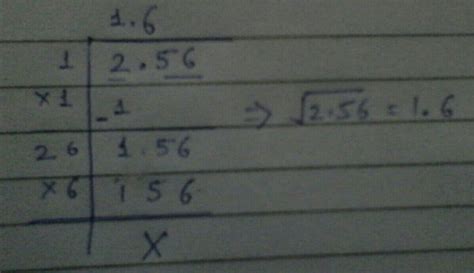 1.6
1 2.56
×1 -1 ⇒ √2.56 = 1.6
26 1.56
×6 156
×